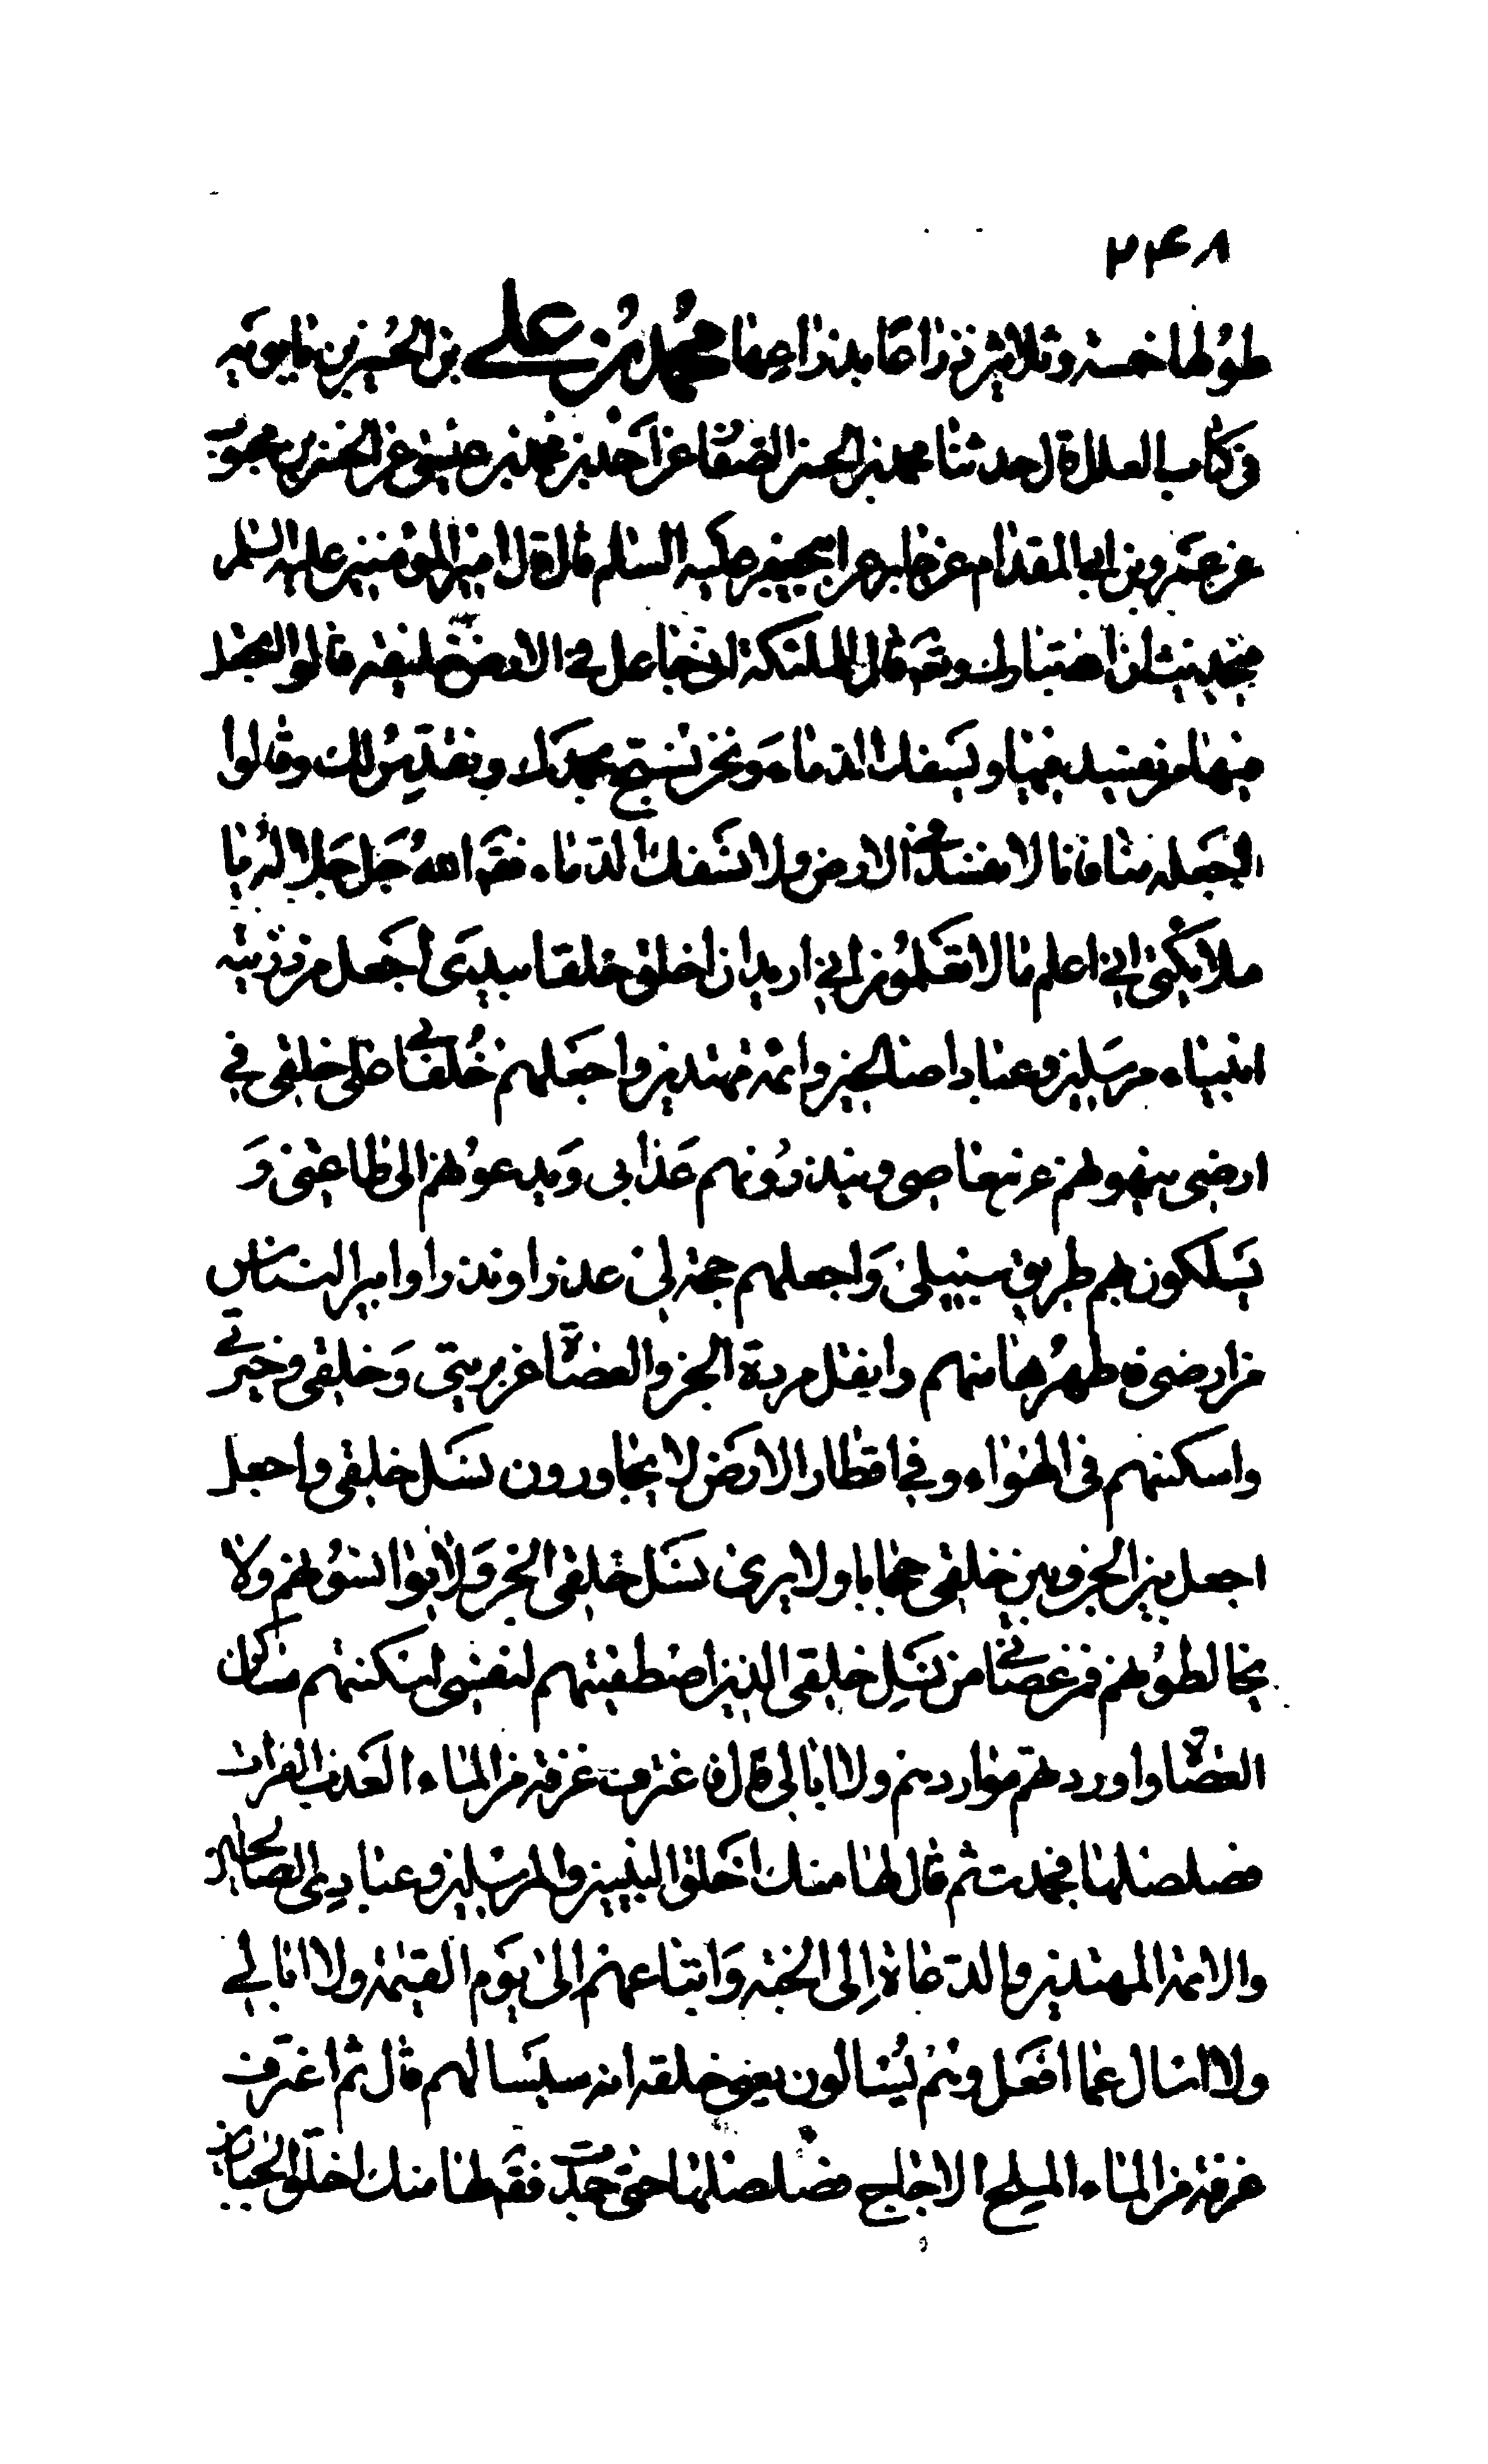 ۲۴۸
طولها خمسة وثلاثين ذراعا بذراعها محمد بن علي بن الحسين بن بابويه
في كتاب العلل قال حدثنا محمد بن الحسن الصفار عن احمد بن محمد بن عيسى عن الحسن بن محبوب
عن عمرو بن ابي المقدام عن جابر عن ابي جعفر عليه السلام قال قال امير المؤمنين عليه السلم
قال للملئكة اني جاعل في الارض خليفة قالوا اتجعل
فيها من يفسد فيها ويسفك الدماء ونحن نسبح بحمدك ونقدس لك وقالوا
اجعله منا فانا لا نفسد في الارض ولا نسفك الدماء فقَ الله جل جلاله يا
ملائكتي اني اعلم ما لا تعلمون اني اريد ان اخلق خلقا بيدي اجعل من ذريته
انبياء مرسلين وعبادا صالحين وائمة مهتدين واجعلهم خلفائي على خلقي في
ارضي ينهونهم عن معاصي وينذرونهم عذابي ويدعونهم الى طاعتي وَ
يسلكون بهم طريق سبيلي وَاجعلهم حجة لي عذرا ونذرا وابير النسناس
من ارضي فاطهرها منهم وانقل مردة الجن والعصاة عن بريتي وَخلقي وخيرتي
واسكنهم في الهواء وفي اقطار الارض لا يجاورون نسل خلقي واجعل
اجعل بين الجن وبين خلقي حجابا ولا يرى نسل خلقي الجن وَلا يؤانسونهم ولا
يخالطونهم فمن عصاني من نسل خلقي الذين اصطفيتهم لنفسي اسكنتهم مساكن
العصاة واوردتهم مواردهم ولا ابالي قال فاغترف غرفة من الماء العذب الفرات
فصلصلها فجمدت ثم قال لها منك اخلق النبيين والمرسلين وعبادي الصالحين
والائمة المهتدين والدعاة اِلى الجنة وَاتباعهم الى يوم القيمة ولا ابالي
ولا اسال عما افعل وهم يُسالون يعني خلقه انه سيسالهم قال ثم اغترف
غرفة من الماء المالح الاجاج فصلصلها حتى جمدت فقَ لها منك اخلق الجبارين